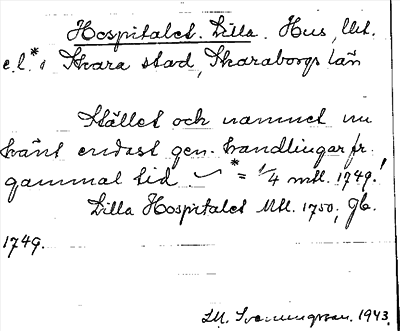 Hospitalet. Lilla. Hus, lht.
e.l.* i Skara stad, Skaraborgs län
Stället och namnet nu
känt endast gen. handlingar fr.
gammal tid * = 1/4 mtl. 1749!
Lilla Hospitalet Ml. 1750; Jb.
1749.
Sveningsson. 1943.